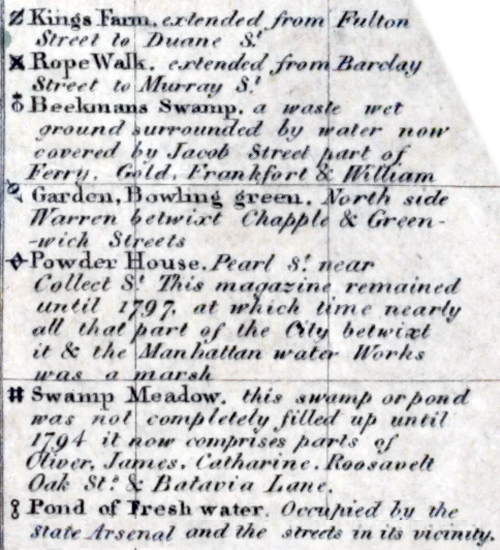 Kings Farm, extended from Fulton
Street to Duane St
Rope Walk. extended from Barclay
Street to Murray St
Beekmans Swamp, a waste wet
ground surrounded by water now
covered by Jacob Street part of
Ferry, Gold, Frankfort & William
Garden, Bowling green. North side
Warren betwixt Chapple & Green-
-wich Streets
Powder House. Pearl St near
Collect St This magazine remained
until 1797, at which time nearly
all that part of the City betwixt
it & the Manhattan water Works
was a marsh
# Swamp Meadow, this swamp or pond
was not completely filled up until
1794 it now comprises parts of
Oliver, James, Catharine, Roosavelt
Oak St. & Batavia Lane.
8 Pond of Fresh water. Occupied by the
State Arsenal and the streets in its vicinity.